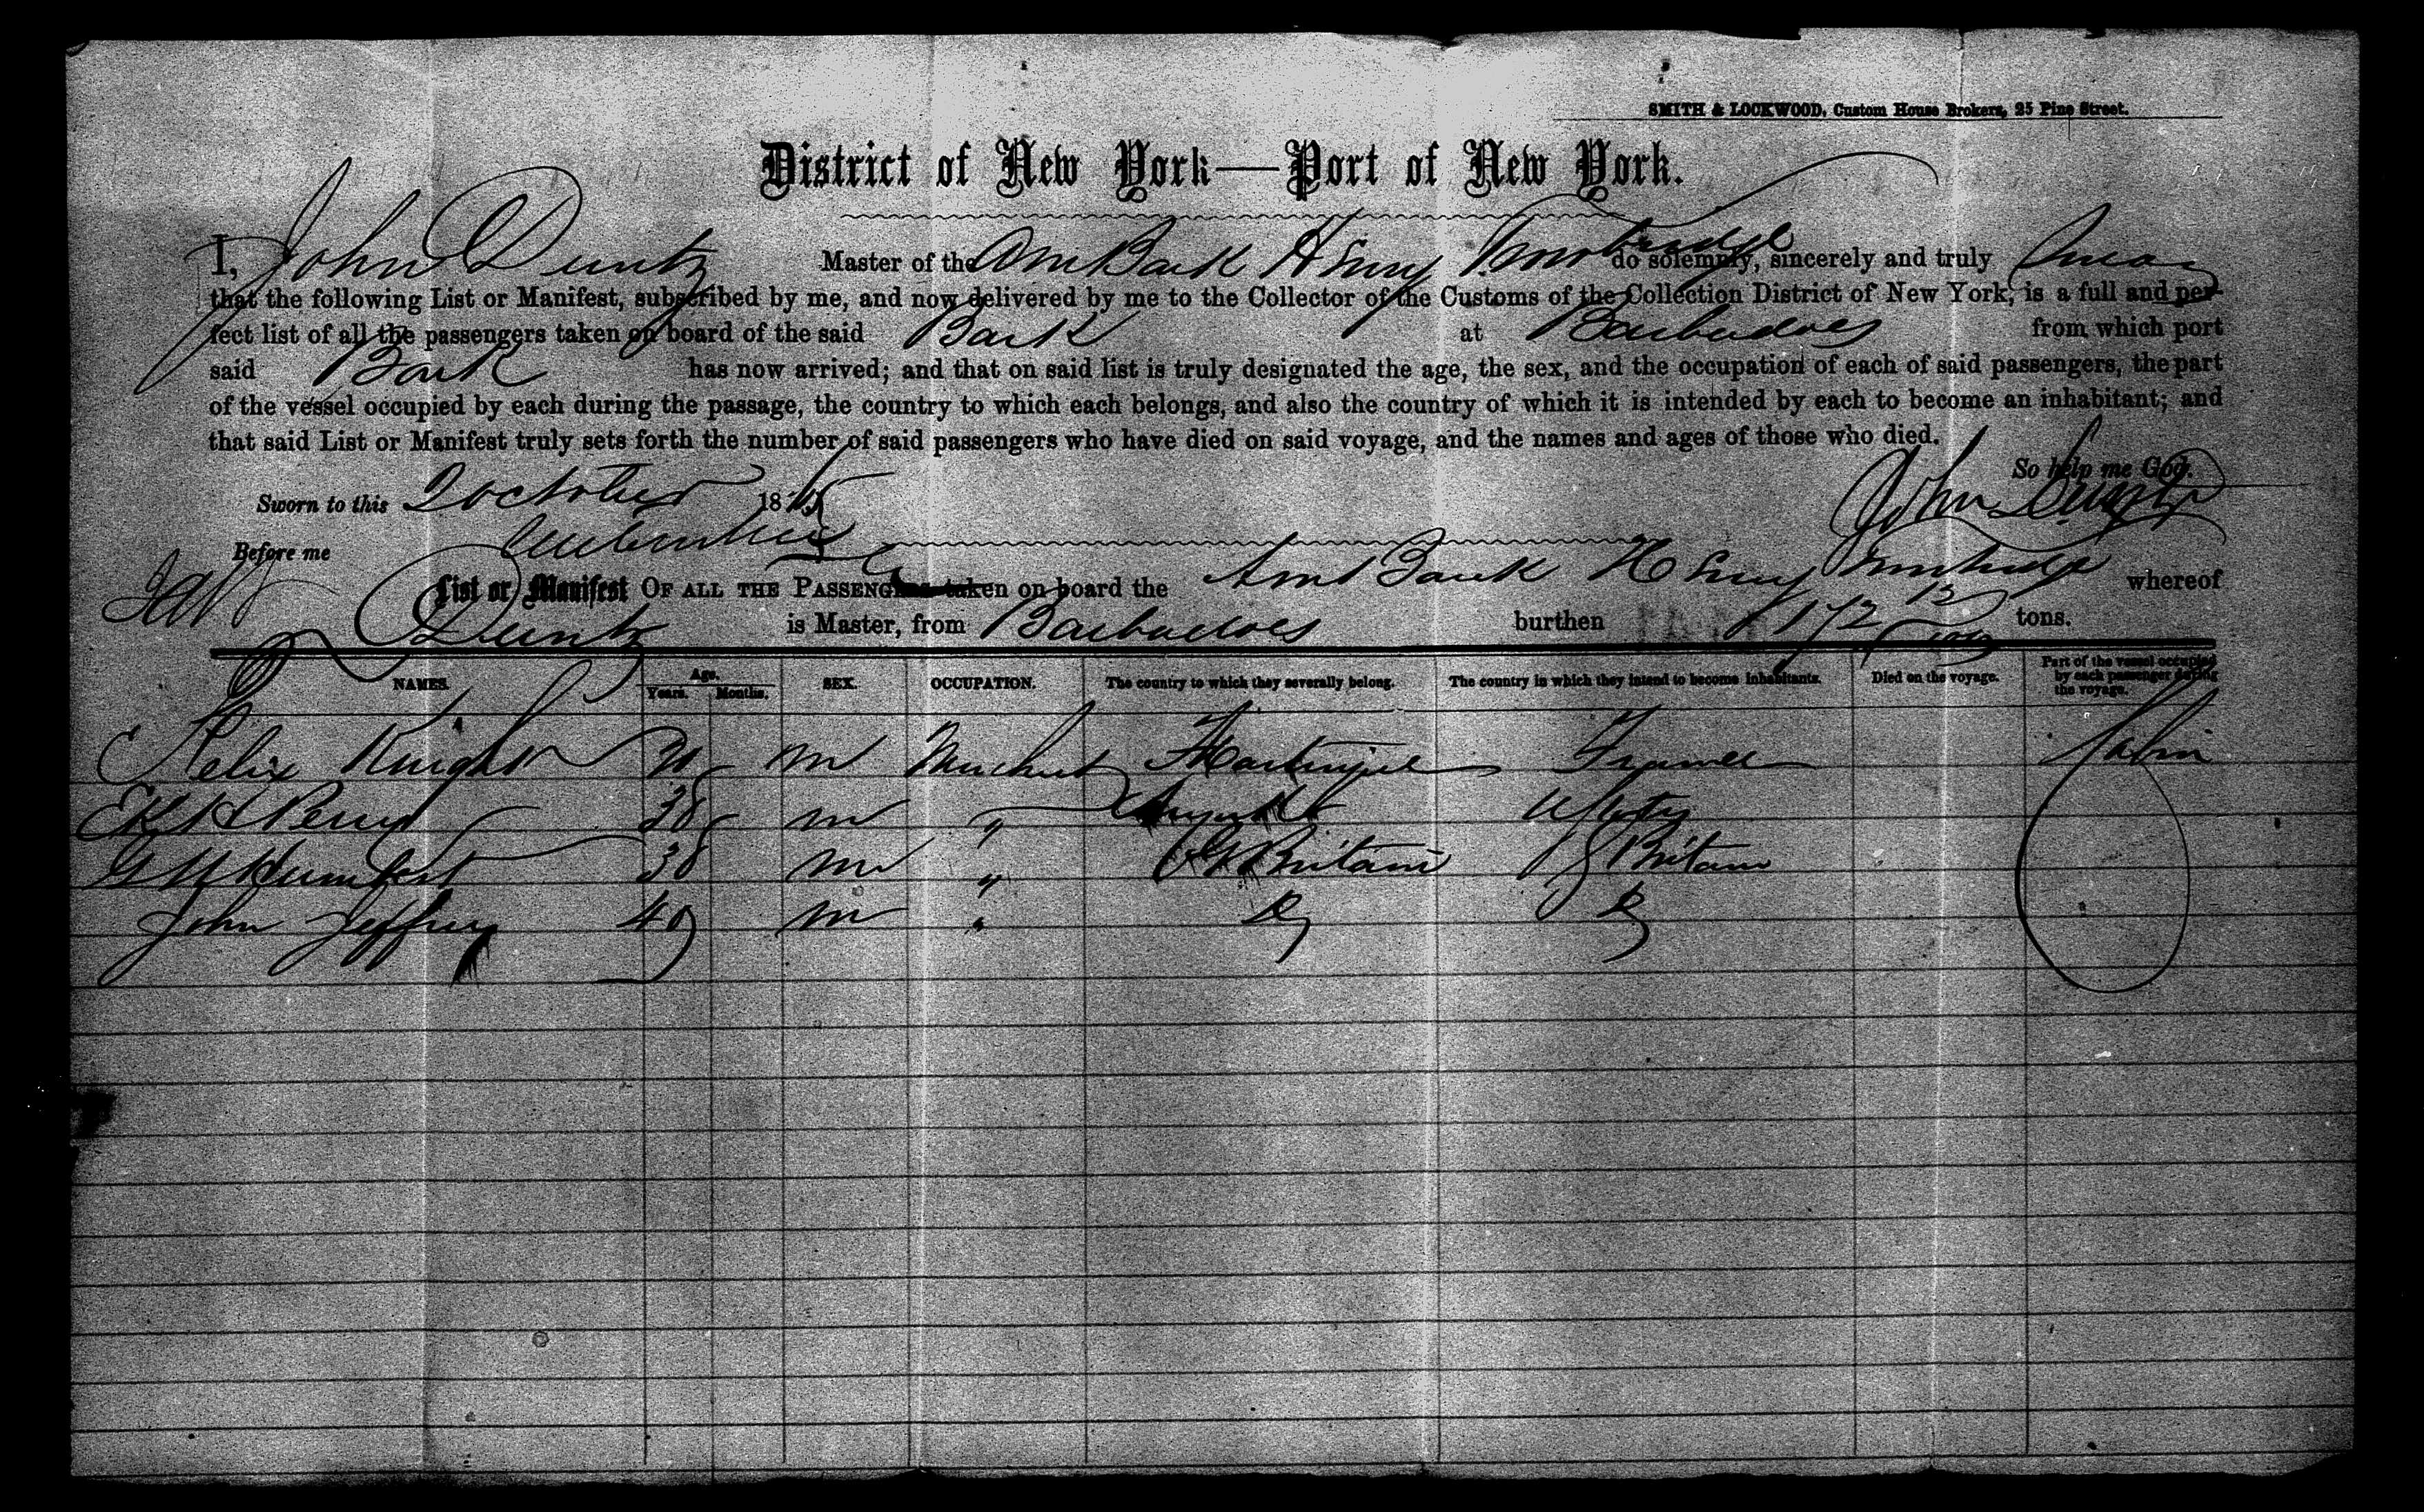 SMITH & LOCKWOOD, Custom House Brokers, 25 Pine Street.
District of New York—Port of New York.
I, John Duntz Master of the Am Bark Henry Trowbridge do solemnly, sincerely and truly Swear
that the following List or Manifest, subscribed by me, and now delivered by me to the Collector of the Customs of the Collection District of New York, is a full and per-
fect list of all the passengers taken on board of the said Bark at Barbadoes from which port
said Bark has now arrived; and that on said list is truly designated the age, the sex, and the occupation of each of said passengers, the part
of the vessel occupied by each during the passage, the country to which each belongs, and also the country of which it is intended by each to become an inhabitant; and
that said List or Manifest truly sets forth the number of said passengers who have died on said voyage, and the names and ages of those who died.
So help me God.
Sworn to this 2 October 1865 John Duntz
Before me
List or Manifest OF ALL THE PASSENGERS taken on board the Am Bark Henry Trowbridge whereof
Duntz is Master, from Barbadoes burthen tons.
NAMES. Age. Years. Months. SEX. OCCUPATION. The country to which they severally belong. The country in which they intend to become inhabitants. Died on the voyage. Part of the vessel occupied by each passenger during the voyage.
Felix Knight m Merchant Martinique France Cabin
Perry 38 m " U States
38 m " G Britain G Britain
John Jeffrey 40 m " Do Do